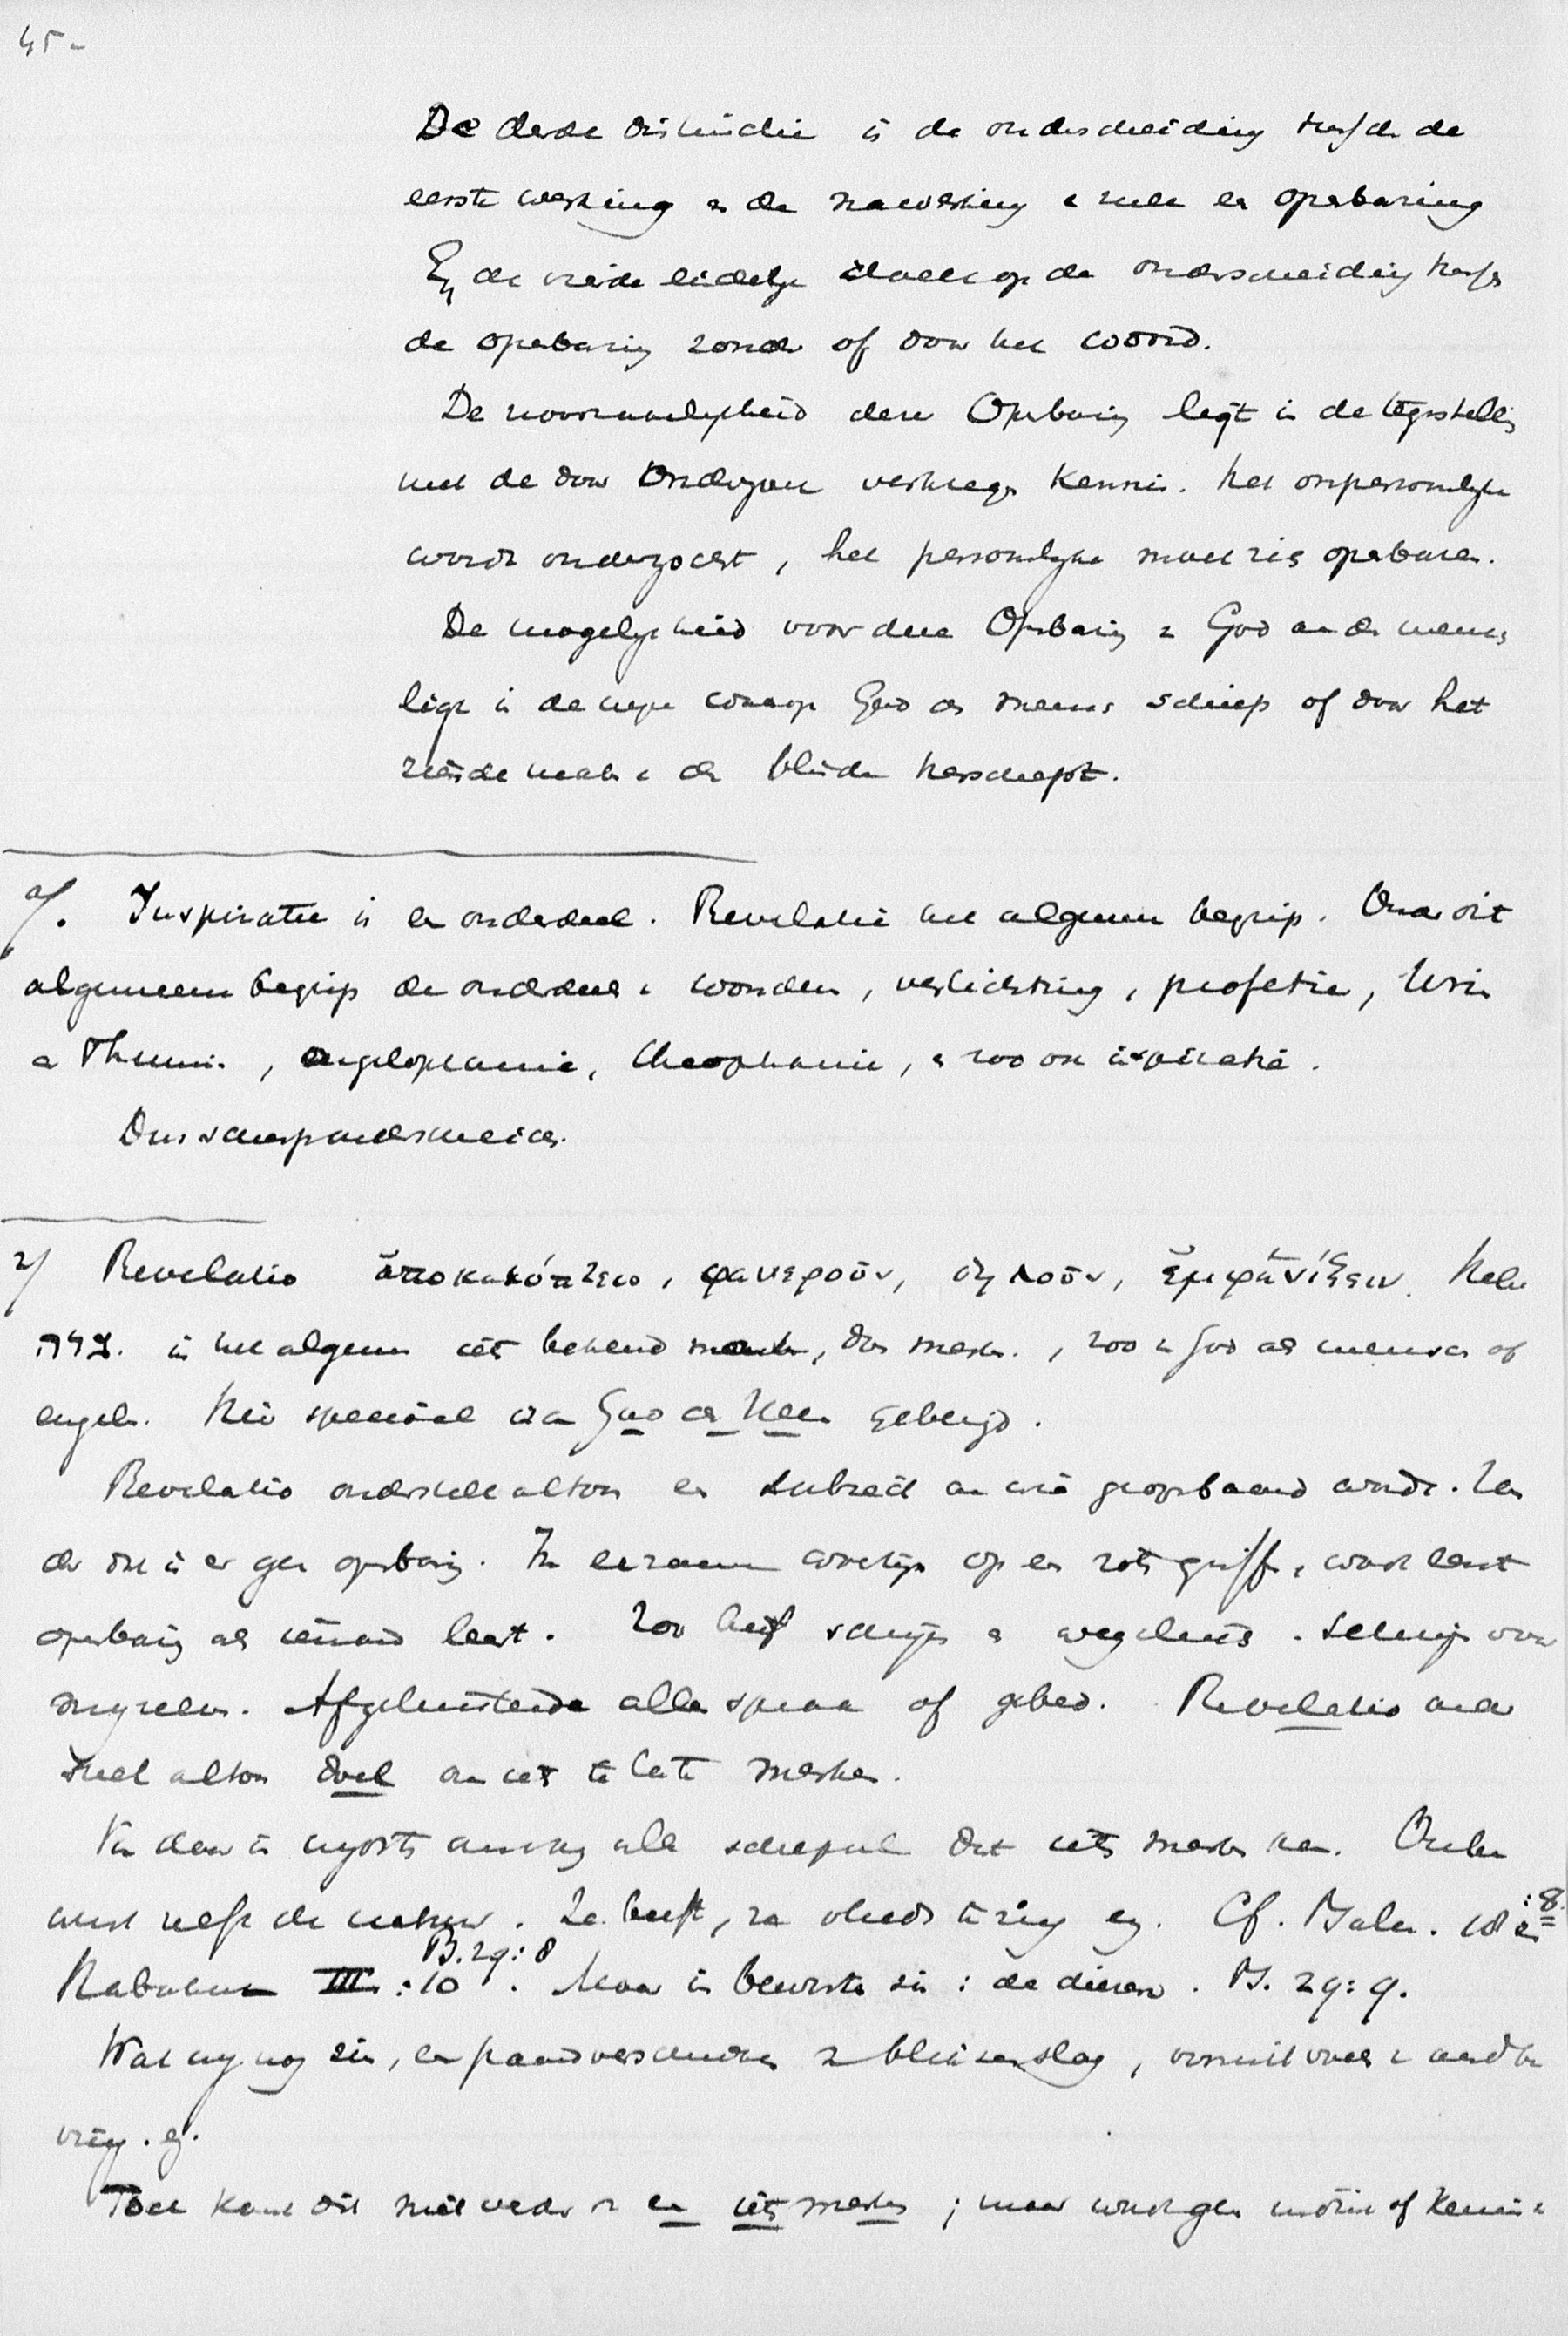 45-
De derde distinctie is de onderscheiding tussch de
eerste werking en de nawerking eener openbaring
En de vierde eindelijk doelt op de onderscheiding tussch
de openbaring zonder of door het woord.
De noodzakelijkheid dezer Openbaring ligt in de tegenstelling
met de door Onderzoek verkregen kennis. het onpersoonlijke
wordt onderzocht, het persoonlijke moet zich openbaren.
De mogelijkheid voor deze Openbaring v. God aan de mensch
ligt in de wijze waarop God de mensch schiep of door het
ziende maken v. de blinde herschept.
a/. Inspiratie is een onderdeel. Revelatie het algemeen begrip. Onder dit
algemeen begrip de onderdeelen wonden, verlichting, profetie, Urim
en Thummim, angelophanie, theophanie, en zoo ook inspiratie.
Dus scherp onderscheiden.
2/ Revelatio ἀποκαλύπτειν, φανεροῦν, δηλοῦν, ἐμφανίζειν. Hebr
גלה. in het algemeen iets bekend maken, doen merken, zoo v God als menschen of
engelen. Hier speciaal van God de Heer gebezigd.
Revelatio onderstelt altoos een subject aan wie geopenbaard wordt. Zon
der dit is er geen openbaring. In eenzaam woestijn op een rots griffen, wordt eerst
openbaring als iemand leest. Zoo brief schrijven en wegsluiten. Schrijven voor
mijzelven. Afgeluisterde alleenspraak of gebed. Revelatio onder
stelt altoos doel om iets te laten merken.
In deze is wijdste omvang alle schepsel dat iets merken kan. Onder
welk zelfs de natuur. Ze beeft, ze vloedt terug enz. Cf. Psalm. 18 :8
Habakuk III :10. Ps. 29:8 Maar in bewuste zin: de dieren. Ps. 29:9.
Wat wij nog zien, een paard verschrikken v bliksemslag, onruil voor v aardbe
ving. enz.
Toch komt dit niet verder dan een iets merken; maar wordt geen notie of kennis